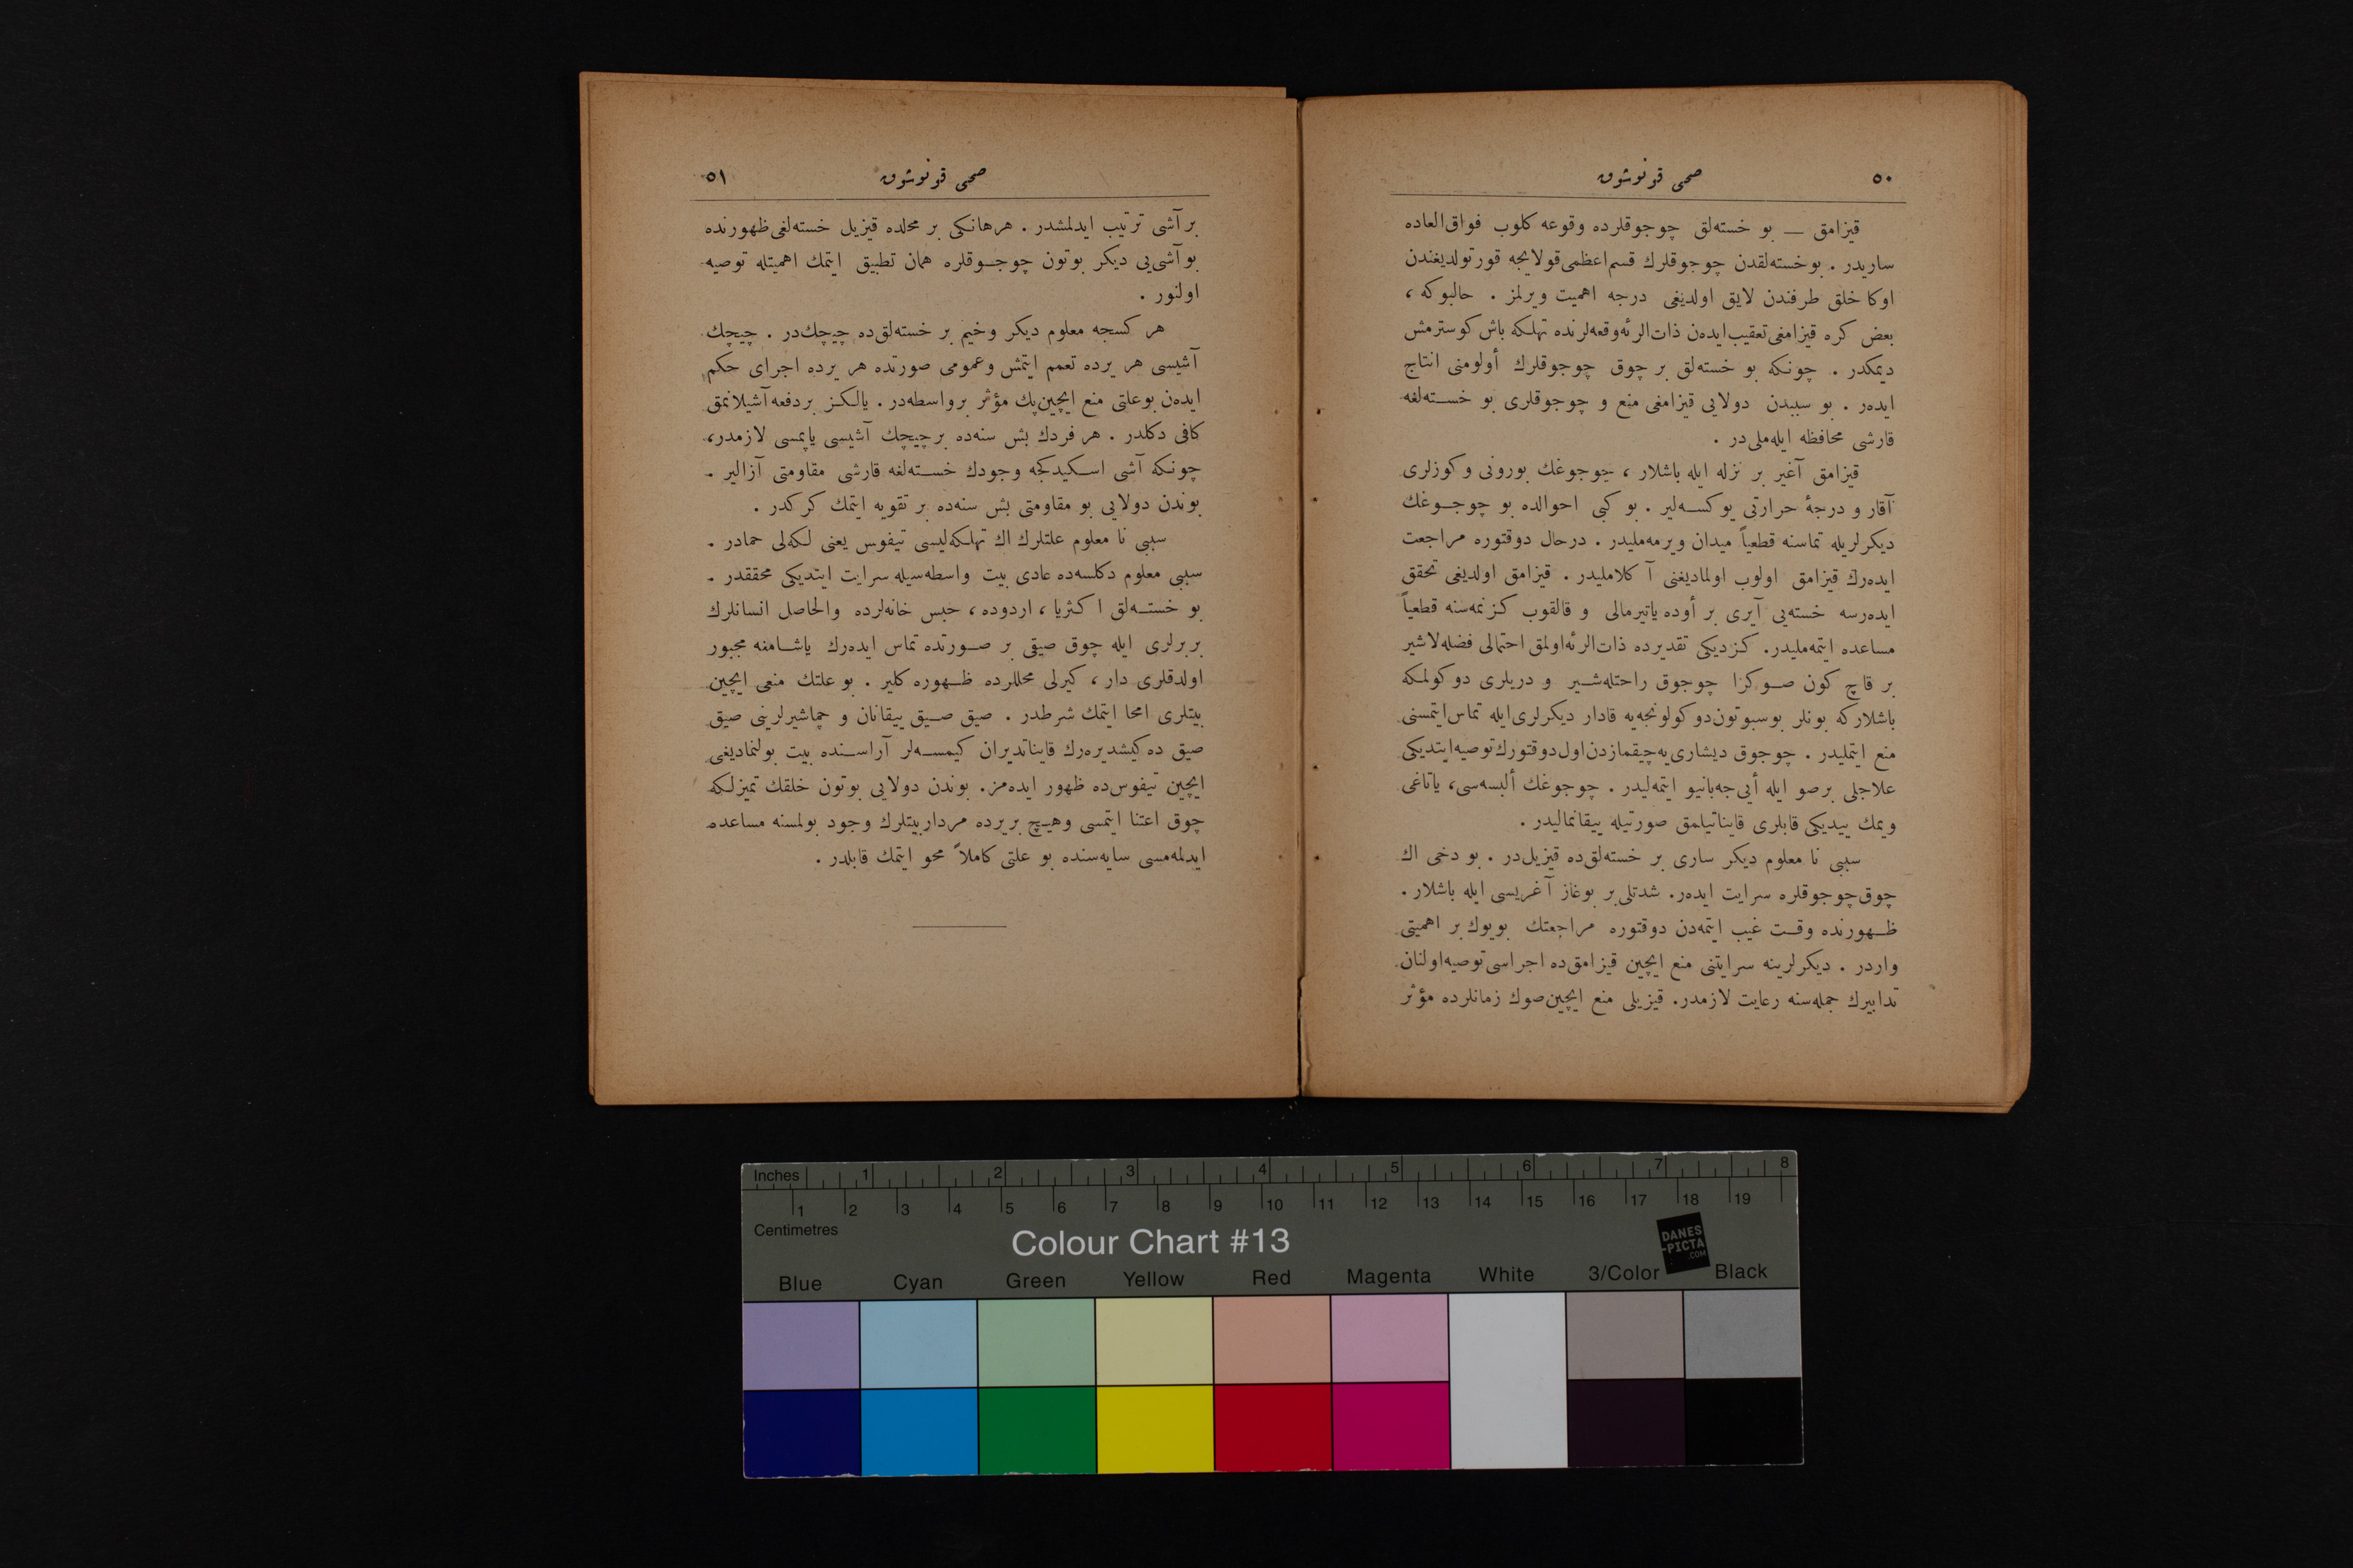 ٥٠
صحی قونوشوق
قیزامق — بو خسته‌لق چوجوقلرده وقوعه كلوب فواق‌العاده
ساریدر . بوخسته‌لقدن چوجوقلرك قسم‌اعظمی‌قولایجه قورتولدیغندن
اوكا خلق طرفندن لایق اولدیغی درجه اهمیت ویرلمز . حالبوكه ،
بعض كره قیزامغی‌تعقیب‌ایده‌ن ذات‌الرئه‌وقعه‌لرنده تهلكه باش كوسترمش
دیمكدر . چونكه بو خسته‌لق بر چوق چوجوقلرك أولومنی انتاج
ایده‌ر . بو سببدن دولایی قیزامغی منع و چوجوقلری بو خسته‌لغه
قارشی محافظه ایله‌ملی‌در .
قیزامق آغیر بر نزله ایله باشلار ، چوجوغك بورونی و كوزلری
آقار و درجهٔ حرارتی یوكسه‌لیر . بو كبی احوالده بو چوجوغك
دیكرلریله تماسنه قطعیاً میدان ویرمه‌ملیدر . درحال دوقتوره مراجعت
ایده‌رك قیزامق اولوب اولمادیغنی آ كلاملیدر . قیزامق اولدیغی تحقق
ایده‌رسه خسته‌یی آیری بر أوده یاتیرمالی و قالقوب كزنمه‌سنه قطعیاً
مساعده ایتمه‌ملیدر. كزدیكی تقدیرده ذات‌الرئه‌اولمق احتمالی فضله‌لاشیر
بر قاچ كون صوكرا چوجوق راحتله‌شیر و دریلری دوكولمكه
باشلاركه بونلر بوسبوتون‌دوكولونجه‌یه قادار دیكرلری‌ایله تماس‌ایتمسنی
منع ایتملیدر . چوجوق دیشاری‌یه‌چیقمازدن‌اول‌دوقتورك‌توصیه‌ایتدیكی
علاجلی برصو ایله أیی‌جه‌بانیو ایتمه‌لیدر . چوجوغك ألبسه‌سی، یاتاغی
ویمك ییدیكی قابلری قایناتیلمق صورتیله ییقانمالیدر .
سببی نا معلوم دیكر ساری بر خسته‌لق‌ده قیزیل‌در . بو دخی اك
چوق‌چوجوقلره سرایت ایده‌ر. شدتلی‌بر بوغاز آغریسی ایله باشلار .
ظهورنده وقت غیب ایتمه‌دن دوقتوره مراجعتك بویوك بر اهمیتی
واردر . دیكرلرینه سرایتنی منع ایچین قیزامق‌ده اجراسی‌توصیه‌اولنان
تدابیرك جمله‌سنه رعایت لازمدر. قیزیلی منع ایچین‌صوك زمانلرده مؤثر
٥١
صحی قونوشوق
بر آشی ترتیب ایدلمشدر . هرهانكی بر محلده قیزیل خسته‌لغی‌ظهورنده
بو آشی‌یی دیكر بوتون چوجوقلره همان تطبیق ایتمك اهمیتله توصیه
اولنور .
هر كسجه معلوم دیكر وخیم بر خسته‌لق‌ده چیچك‌در . چیچك
آشیسی هر یرده تعمم ایتمش وعمومی صورتده هر یرده اجرای حكم
ایده‌ن بوعلتی منع ایچین‌پك مؤثر برواسطه‌در . یالكز بردفعه‌آشیلانمق
كافی دكلدر . هر فردك بش سنه‌ده بر چیچك آشیسی یاپمسی لازمدر،
چونكه آشی اسكیدكجه وجودك خسته‌لغه قارشی مقاومتی آزالیر .
بوندن دولایی بو مقاومتی بش سنه‌ده بر تقویه ایتمك كركدر .
سببی نا معلوم علتلرك اك تهلكه‌لیسی تیفوس یعنی لكه‌لی حمادر .
سببی معلوم دكلسه‌ده عادی بیت واسطه‌سیله سرایت ایتدیكی محققدر .
بو خسته‌لق ا كثریا ، اردوده ، حبس خانه‌لرده والحاصل انسانلرك
بربرلری ایله چوق صیقی بر صورتده تماس ایده‌رك یاشامغه مجبور
اولدقلری دار ، كیرلی محللرده ظهوره كلیر . بو علتك منعی ایچین
بیتلری امحا ایتمك شرطدر . صیق صیق ییقانان و چماشیرلرینی صیق
صیق ده‌كیشدیره‌رك قایناتدیران كیمسه‌لر آراسنده بیت بولنمادیغی
ایچین تیفوس‌ده ظهور ایده‌مز. بوندن دولایی بوتون خلقك تمیزلكه
چوق اعتنا ایتمسی وهیچ بریرده مردار‌بیتلرك وجود بولمسنه مساعده
ایدلمه‌مسی سایه‌سنده بو علتی كاملاً محو ایتمك قابلدر .
Inches 1 2 3 4 5 6 7 8
1 2 3 4 5 6 7 8 9 10 11 12 13 14 15 16 17 18 19
Centimetres
Colour Chart #13
DANES
-PICTA
.COM
Blue Cyan Green Yellow Red Magenta White 3/Color Black